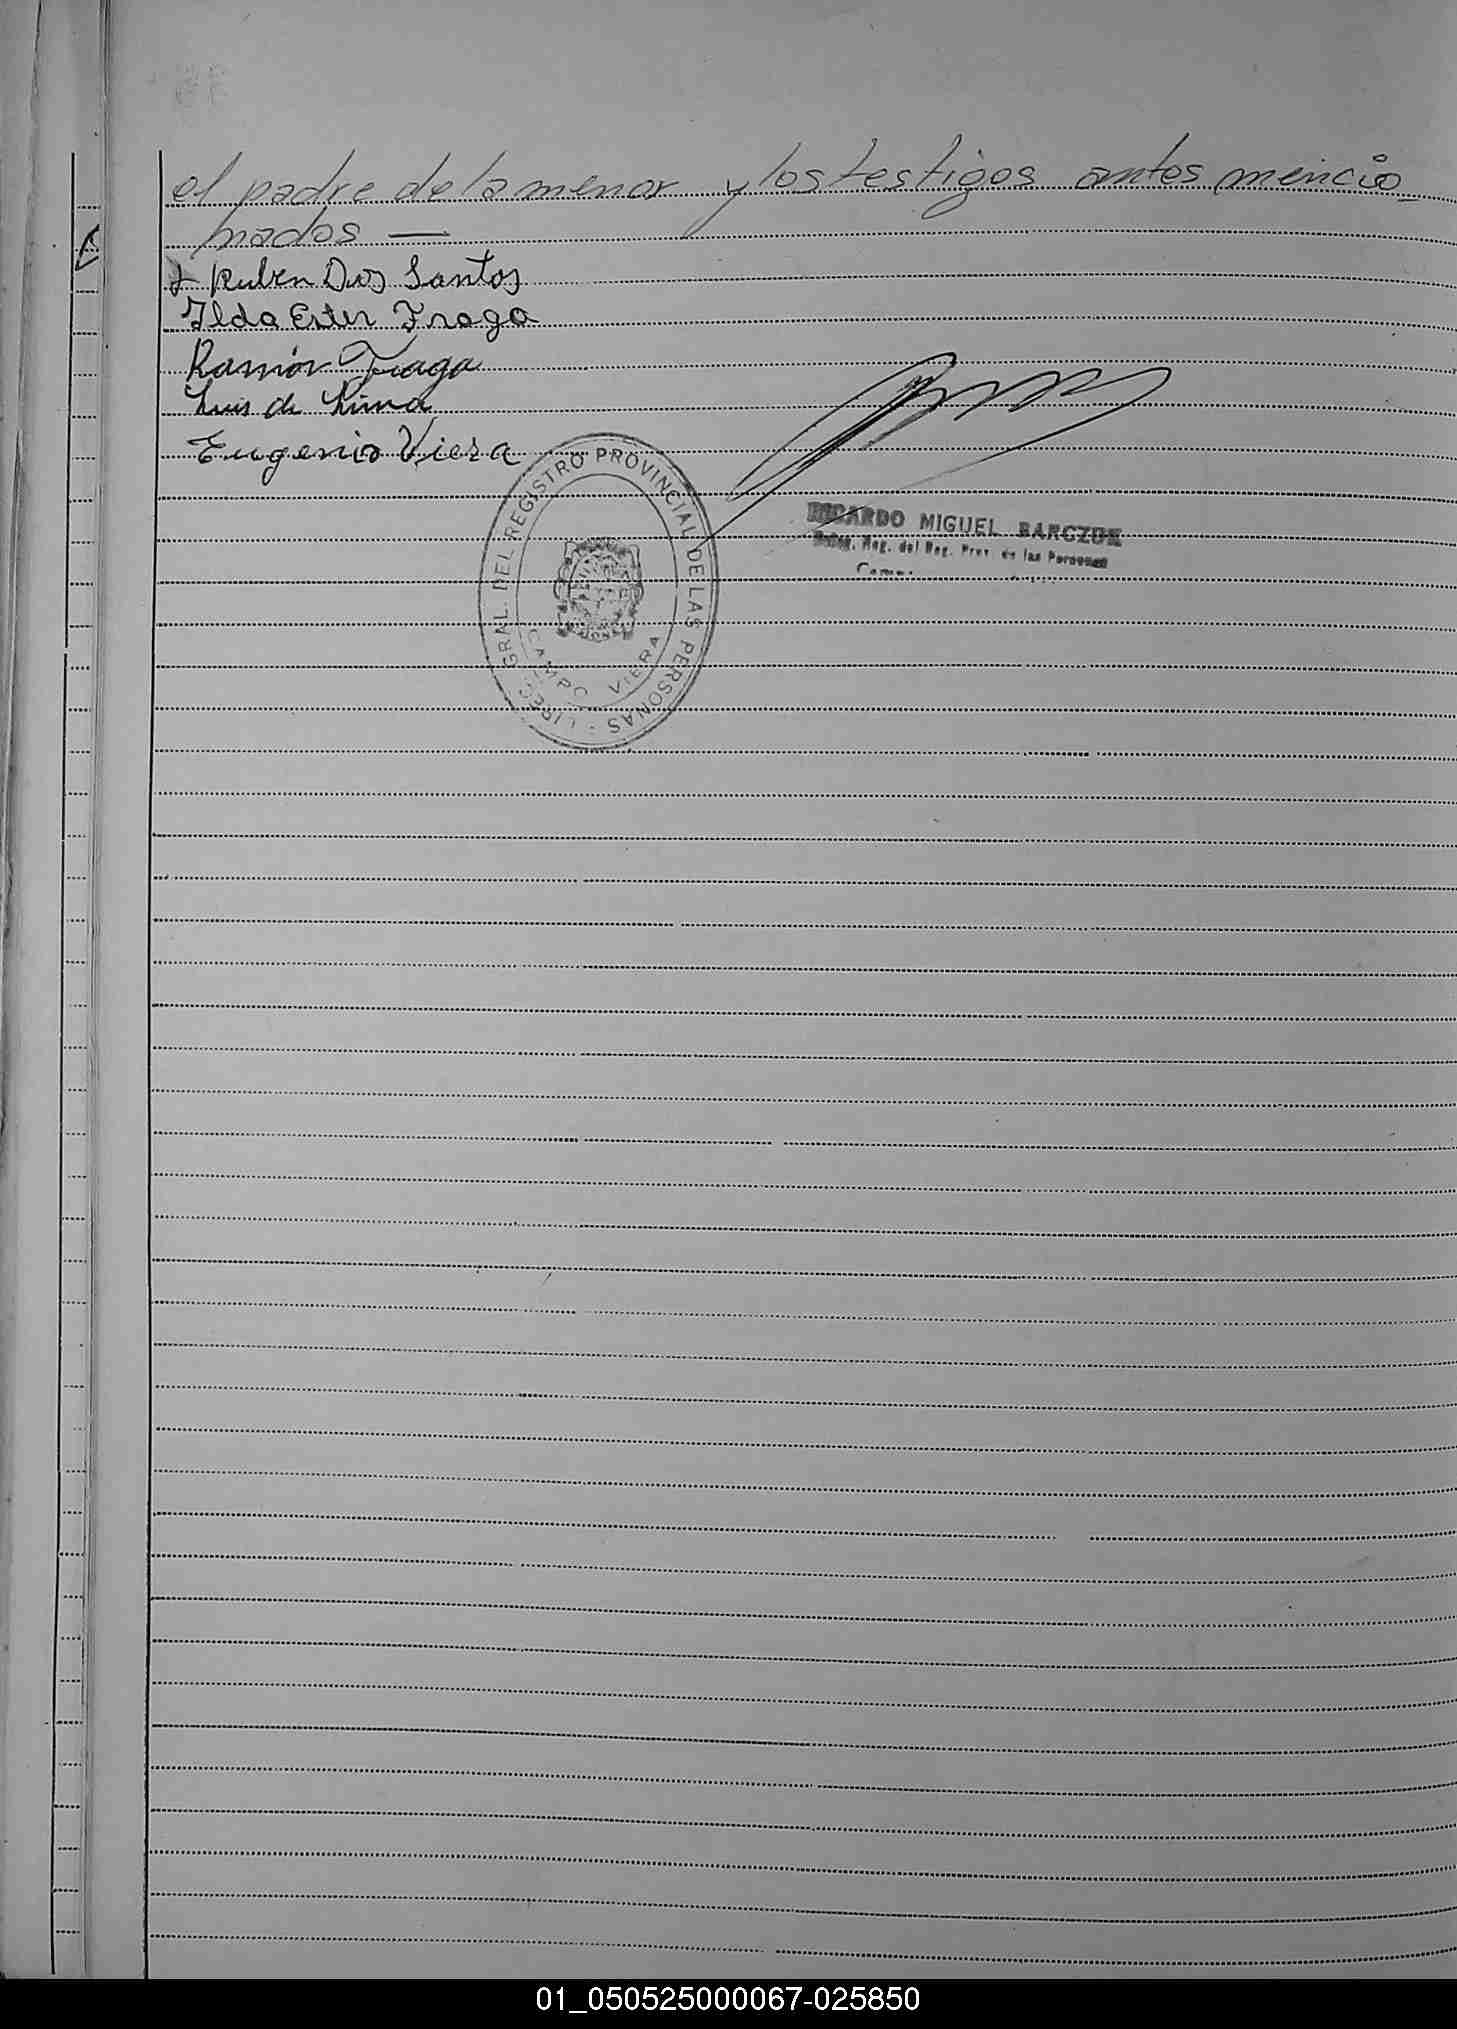 el padre de la menor y los testigos antes mencio_
nados —
Ruben Dos Santos
Ilda Ester Fraga
Ramón Fraga
Luis de Lima
Eugenio Viera
DIREC. GRAL. DEL REGISTRO PROVINCIAL DE LAS PERSONAS
CAMPO VIERA
MISIONES
RICARDO MIGUEL BARCZUK
Deleg. Reg. del Reg. Prov. de las Personas
01_050525000067-025850